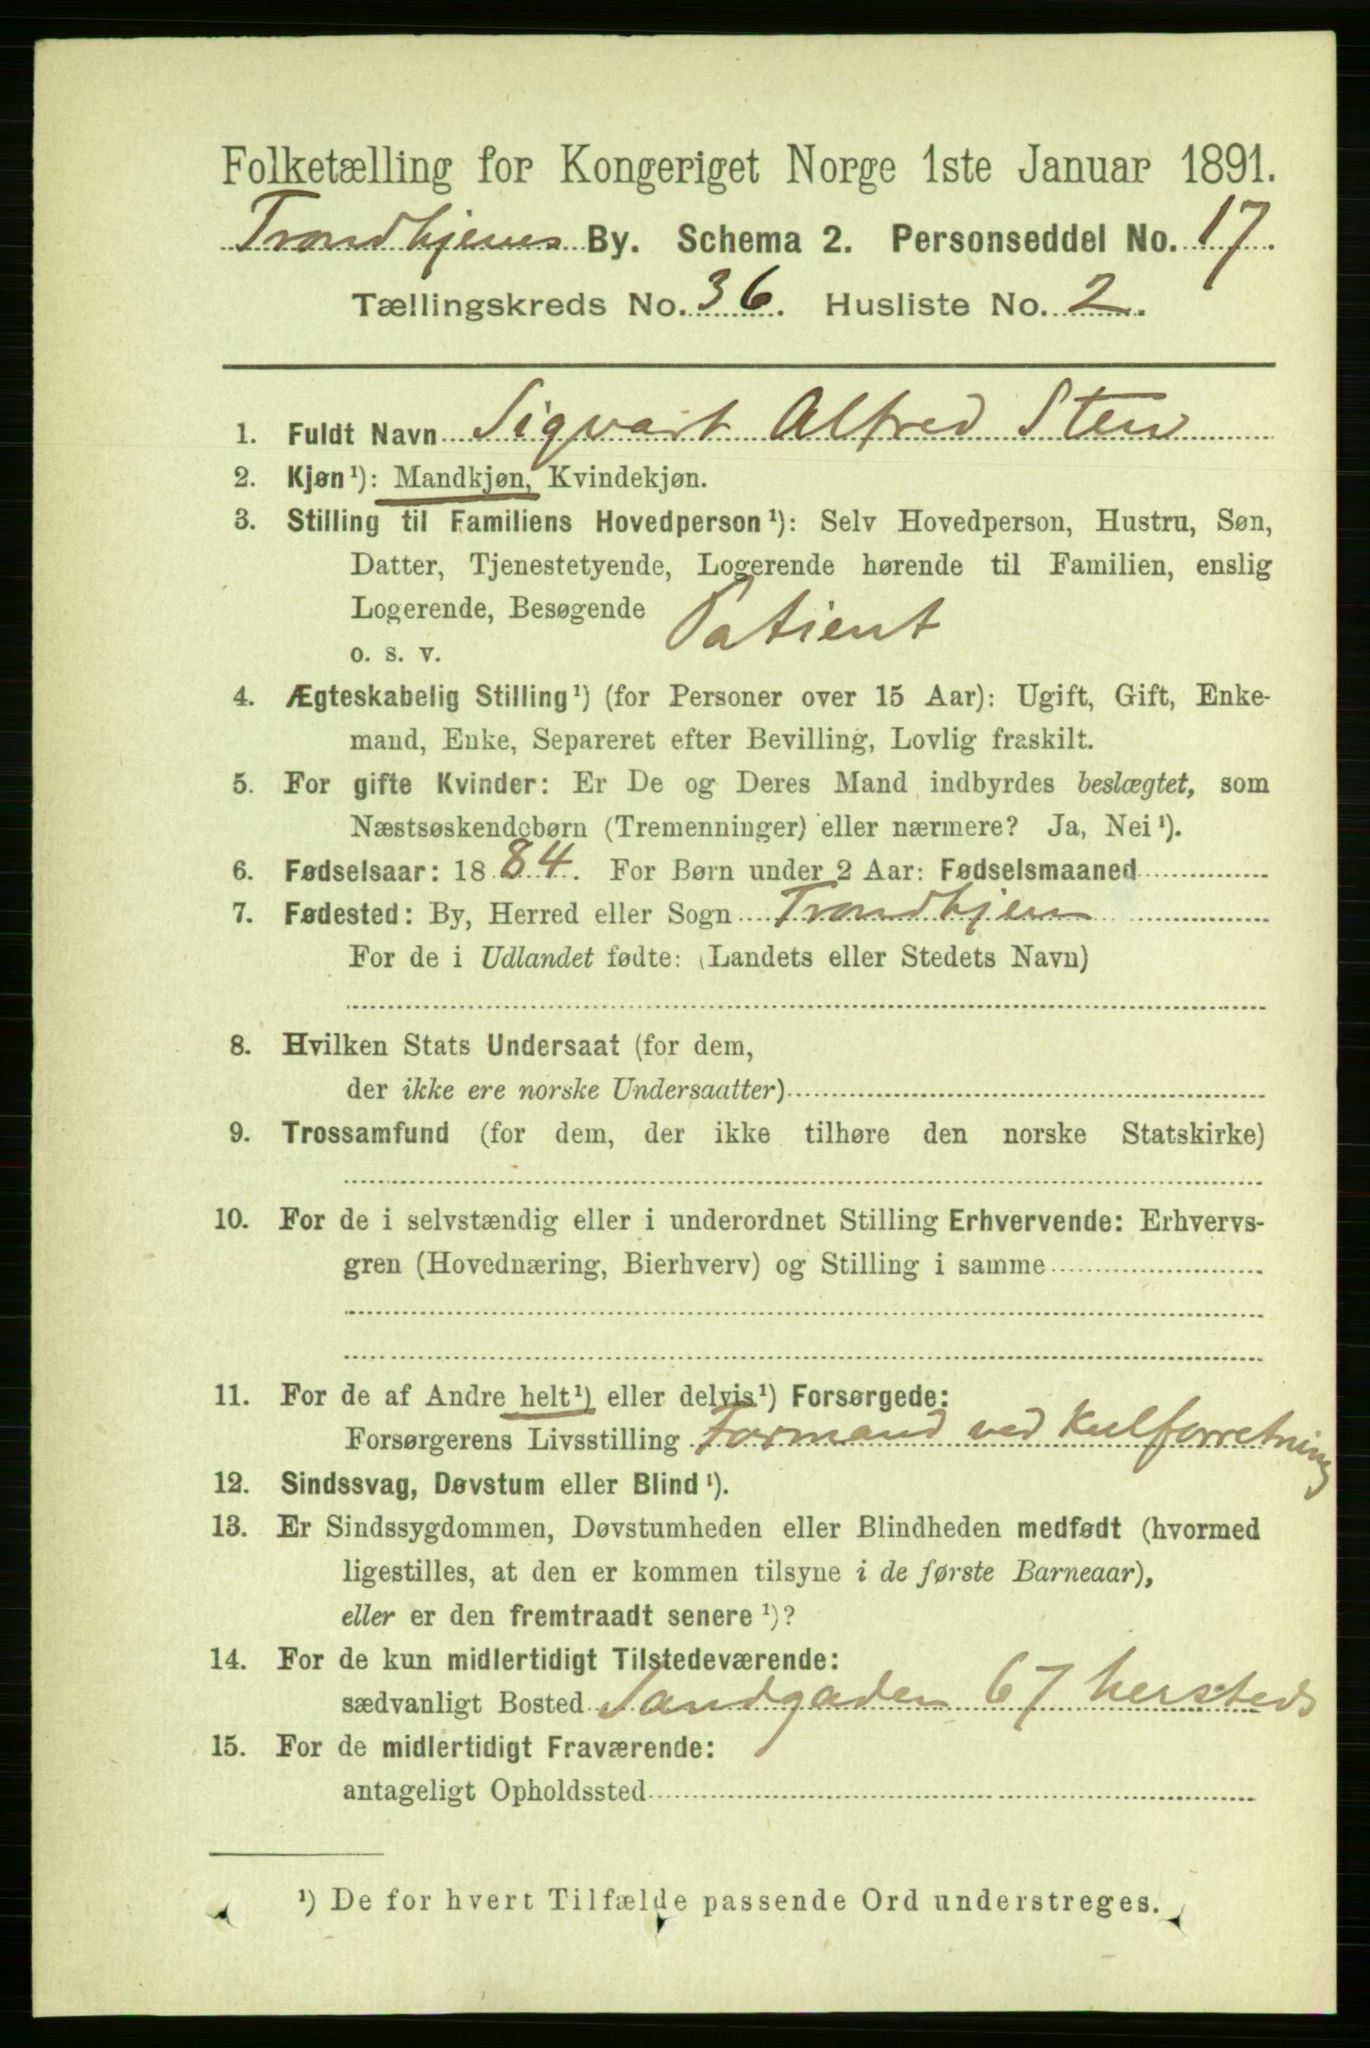 Folketælling for Kongeriget Norge 1ste Januar 1891.
Trondhjems By. Schema 2. Personseddel No. 17.
Tællingskreds No. 36. Husliste No. 2.
1. Fuldt Navn Sigvart Alfred Sten
2. Kjøn¹): Mandkjøn, Kvindekjøn.
3. Stilling til Familiens Hovedperson¹): Selv Hovedperson, Hustru, Søn,
Datter, Tjenestetyende, Logerende hørende til Familien, enslig
Logerende, Besøgende Patient
o. s. v.
4. Ægteskabelig Stilling¹) (for Personer over 15 Aar): Ugift, Gift, Enke-
mand, Enke, Separeret efter Bevilling, Lovlig fraskilt.
5. For gifte Kvinder: Er De og Deres Mand indbyrdes beslægtet, som
Næstsøskendebørn (Tremenninger) eller nærmere? Ja, Nei¹).
6. Fødselsaar: 1884. For Børn under 2 Aar: Fødselsmaaned
7. Fødested: By, Herred eller Sogn Trondhjem
For de i Udlandet fødte: (Landets eller Stedets Navn)
8. Hvilken Stats Undersaat (for dem,
der ikke ere norske Undersaatter)
9. Trossamfund (for dem, der ikke tilhøre den norske Statskirke)
10. For de i selvstændig eller i underordnet Stilling Erhvervende: Erhvervs-
gren (Hovednæring, Bierhverv) og Stilling i samme
11. For de af Andre helt¹) eller delvis¹) Forsørgede:
Forsørgerens Livsstilling Formand ved Kulforretning
12. Sindssvag, Døvstum eller Blind¹).
13. Er Sindssygdommen, Døvstumheden eller Blindheden medfødt (hvormed
ligestilles, at den er kommen tilsyne i de første Barneaar),
eller er den fremtraadt senere¹)?
14. For de kun midlertidigt Tilstedeværende:
sædvanligt Bosted Sandgaden 67 hersteds
15. For de midlertidigt Fraværende:
antageligt Opholdssted
¹) De for hvert Tilfælde passende Ord understreges.